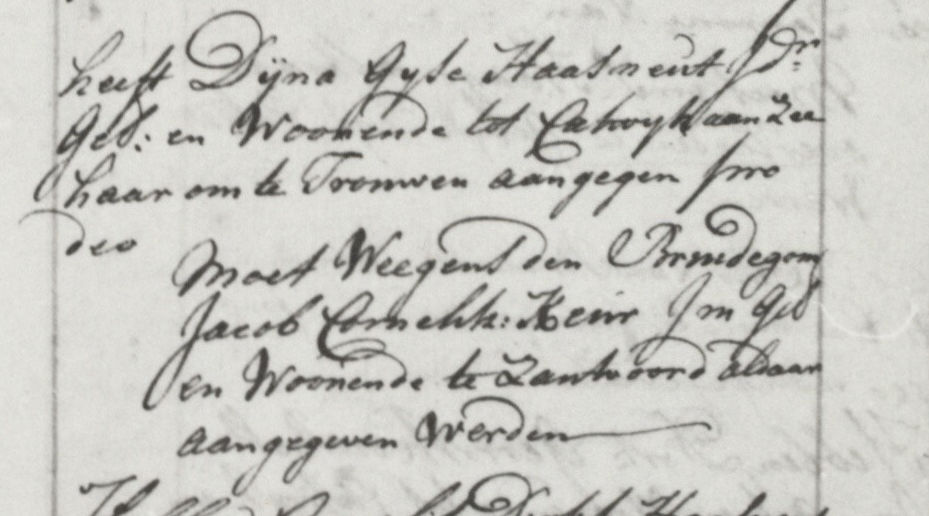 heeft Dijna Gyse Haasneut Jdr
Geb: en Woonende tot Catwyk aan Zee
haar om te Trouwen aangegen pro
deo
Moet Weegens den Bruidegom
Jacob Cornelik: Keur Jm Geb
en Woonende te Zantvoord aldaar
aangegeven werden